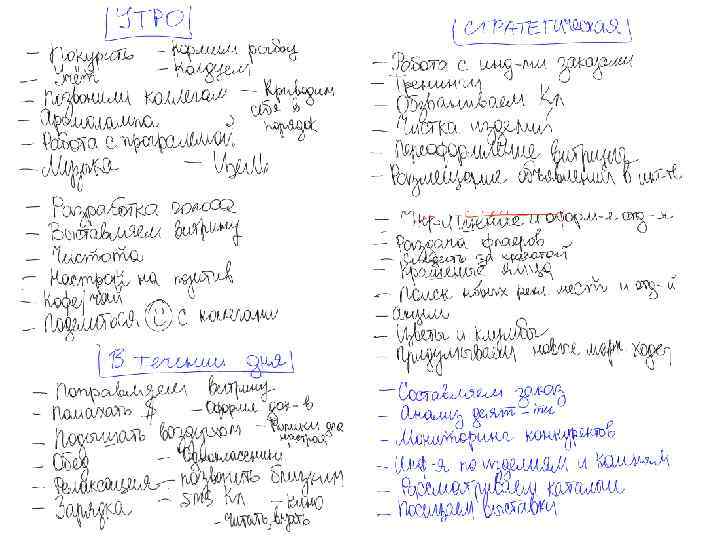 УТРО
- Покурить
- Кормим рыбок
- Учёт
- Колдуем
- Позвонили коллегам
- Приводим себя в порядок
- Аромалампа
- Работа с программой
- Музыка
- Цели
- Разработка голоса
- Выставляем витрину
- Чистота
- Настрой на позитив
- Кофе, чай
- Поделиться с коллегами
В течении дня
- Поправляем витрину
- Помахать $
- Оформл док-в
- Подышать воздухом
- Обед
- Одноклассники
- Релаксация
- позвонить близким
- Зарядка
- SMS Кл
- Кино
- Читать
СТРАТЕГИческая
- Работа с инд-ми заказами
- Тренинги
- Обзваниваем Кл
- Чистка изделий
- Переоформление витрины
- Размещение объявлений в инт-те
- и оформ-е отд-я
- Раздача флаеров
- Следить за красотой
- Крашеные яйца
- Поиск новых рекл мест и отд-й
- Акции
- Цветы и клумбы
- Придумываем новые марк ходы
- Составляем заказ
- Анализ деят-ти
- Мониторинг конкурентов
- Инф-я по изделиям и камням
- Рассматриваем каталоги
- Посещаем выставки